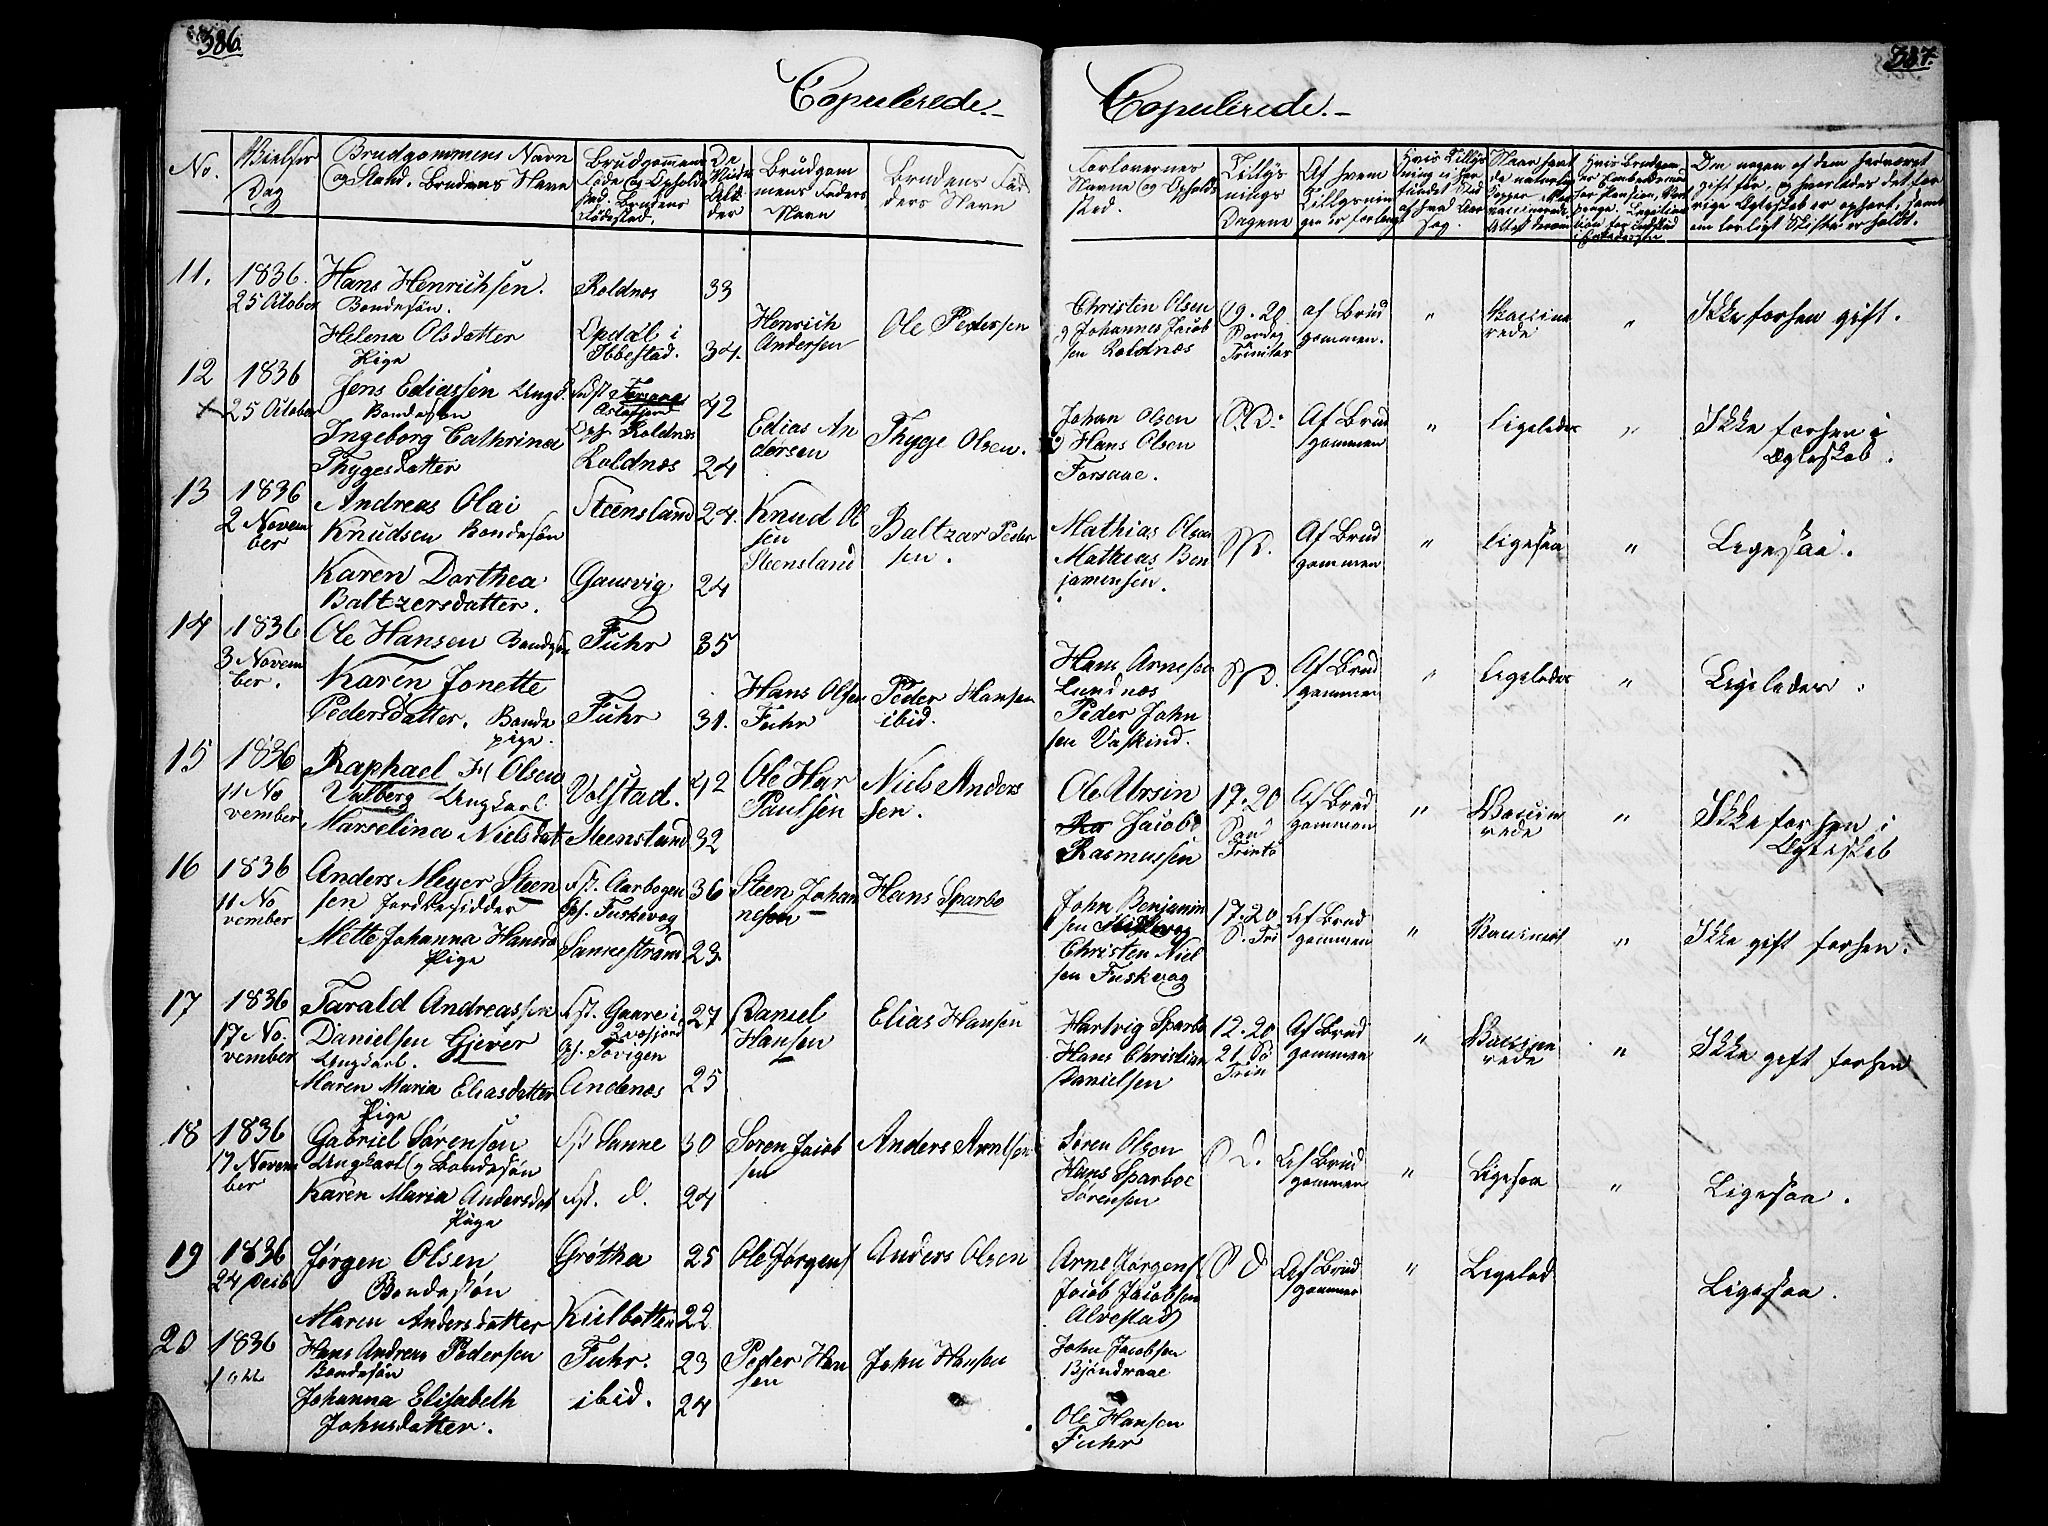 386.
Copulerede.
No.
Vielses Dag
Brudgommens Navn og Stand. Brudens Navn
Brudgommens Føde og Opholdssted. Brudens Fødested.
De Viedes Alder
Brudgommens Faders Navn
Brudens Faders Navn
11.
1836.
25 October
Hans Henrichsen.
Bondesøn.
Helena Olsdatter
Pige
Roldnæs
Opdal i
Ibbestad.
33
34.
Henrich
Andersen
Ole Pedersen
12
1836
25 October
Jens Ediassen Ungk.
Bondesøn
Ingeborg Cathrina
Thygesdatter
Fst Forsaae
Oph Roldnæs
Roldnæs
42
24
Edias An
dersen
Thygge Olsen.
13
1836
2 Novem
ber
Andreas Olai
Knudsen Bondesøn
Karen Dorthea
Baltzersdatter.
Steensland
Gausvig
24.
24
Knud Ol
sen
Steensland
Baltzar Peder
sen.
14
1836
3 Novem
ber.
Ole Hansen Bondesøn
Karen Jonette
Pedersdatter. Bonde
pige.
Fuhr
Fuhr
35
31.
Hans Olsen
Fuhr
Peder Hansen
ibid.
15
1836
11 No
vember
Raphael Olsen
Valberg Ungkarl
Marselina Nielsdat
Volstad.
Steensland
42
32
Ole Har
Paulsen
Niels Anders
sen.
16
1836
11 No
vember
Anders Meyer Steen
sen Jordbesidder
Mette Johanna Hansd
Pige
Fst. Aarbogen
Oph. Fuskevog
Sannestrand
36
23.
Steen Johan
nesen
Hans Sparbo
17
1836
17 No.
vember
Tarald Andreassen
Danielsen Gjever
Ungkarl.
Maren Maria Eliasdatter
Pige
Fst. Gaare i
Qvæfjord
Oph. Torigen
Andenæs
27
25
Daniel
Hansen
Elias Hansen
18
1836
17 Novem
ber
Gabriel Sørensen
Ungkarl og Bondesøn
Karen Maria Andersdat
Pige
Fst Sanne
Fst. d.
30
24
Søren Jacob
sen
Anders Arntsen
19
1836
24 Decb
Jørgen Olsen
Bondesøn
Maren Andersdatter
Grøtha
Kielbotten
25
22
Ole Jørgens
Anders Olsen
20
1836
Hans Andreas Pedersen
Bondesøn
Johanna Elisabeth
Johnsdatter.
Fuhr.
ibid.
23
24
Peder Han
sen
John Hansen
387.
Copulerede.
Forlovernes Navne og Opholdssted.
Tillysnings Dagene
Af hvem Tillysningen er forlangt
Christen Olsen
og Johannes Jacob
sen Roldnæs
19. 20
Søndag
Trinitas
af Brud
gommen.
"
Vaccine
rede
"
Ikke forhen gift.
Johan Olsen
og Hans Olsen
Forsaae.
S.D.
Af Brud
gommen
"
Ligeledes
"
Ikke forhen i
Ægteskab.
Mathias Olsen
Mathias Ben
jamensen.
S D.
Af Brud
gommen
"
Ligesaa
"
Ligesaa.
Hans Arnesen
Lundnæs
Peder John
sen Vaskind.
S D.
Af Brud
gommen
"
Ligeledes
"
Ligeledes.
Ole Ursin
Jacob
Rasmussen
17. 20
Sønd
Trinta
Af Brud
gommen
"
Vaccine
rede
"
Ikke forhen i
Ægteskab
John Benjamin
sen
Christen Niel
sen Fuskvog
17. 20
S. Tri
Af Brud
gommen
"
"
Ikke gift forhen.
Hartvig Sparbo
Hans Christian
Danielsen
12. 20
21. Sø
Trin
Af Brud
gommen
"
Vaccine
rede
"
Ikke gift forhen
Søren Olsen
Hans Sparboe
Sørensen
S D.
Af Brud
gommen
"
Ligesaa
"
Ligesaa.
Arne Jørgens
Jacob Jacobsen
Alvestad
S D
Af Brud
gommen
"
Ligeled
Ligesaa.
John Jacobsen
Bjøndraae
Ole Hansen
Fuhr